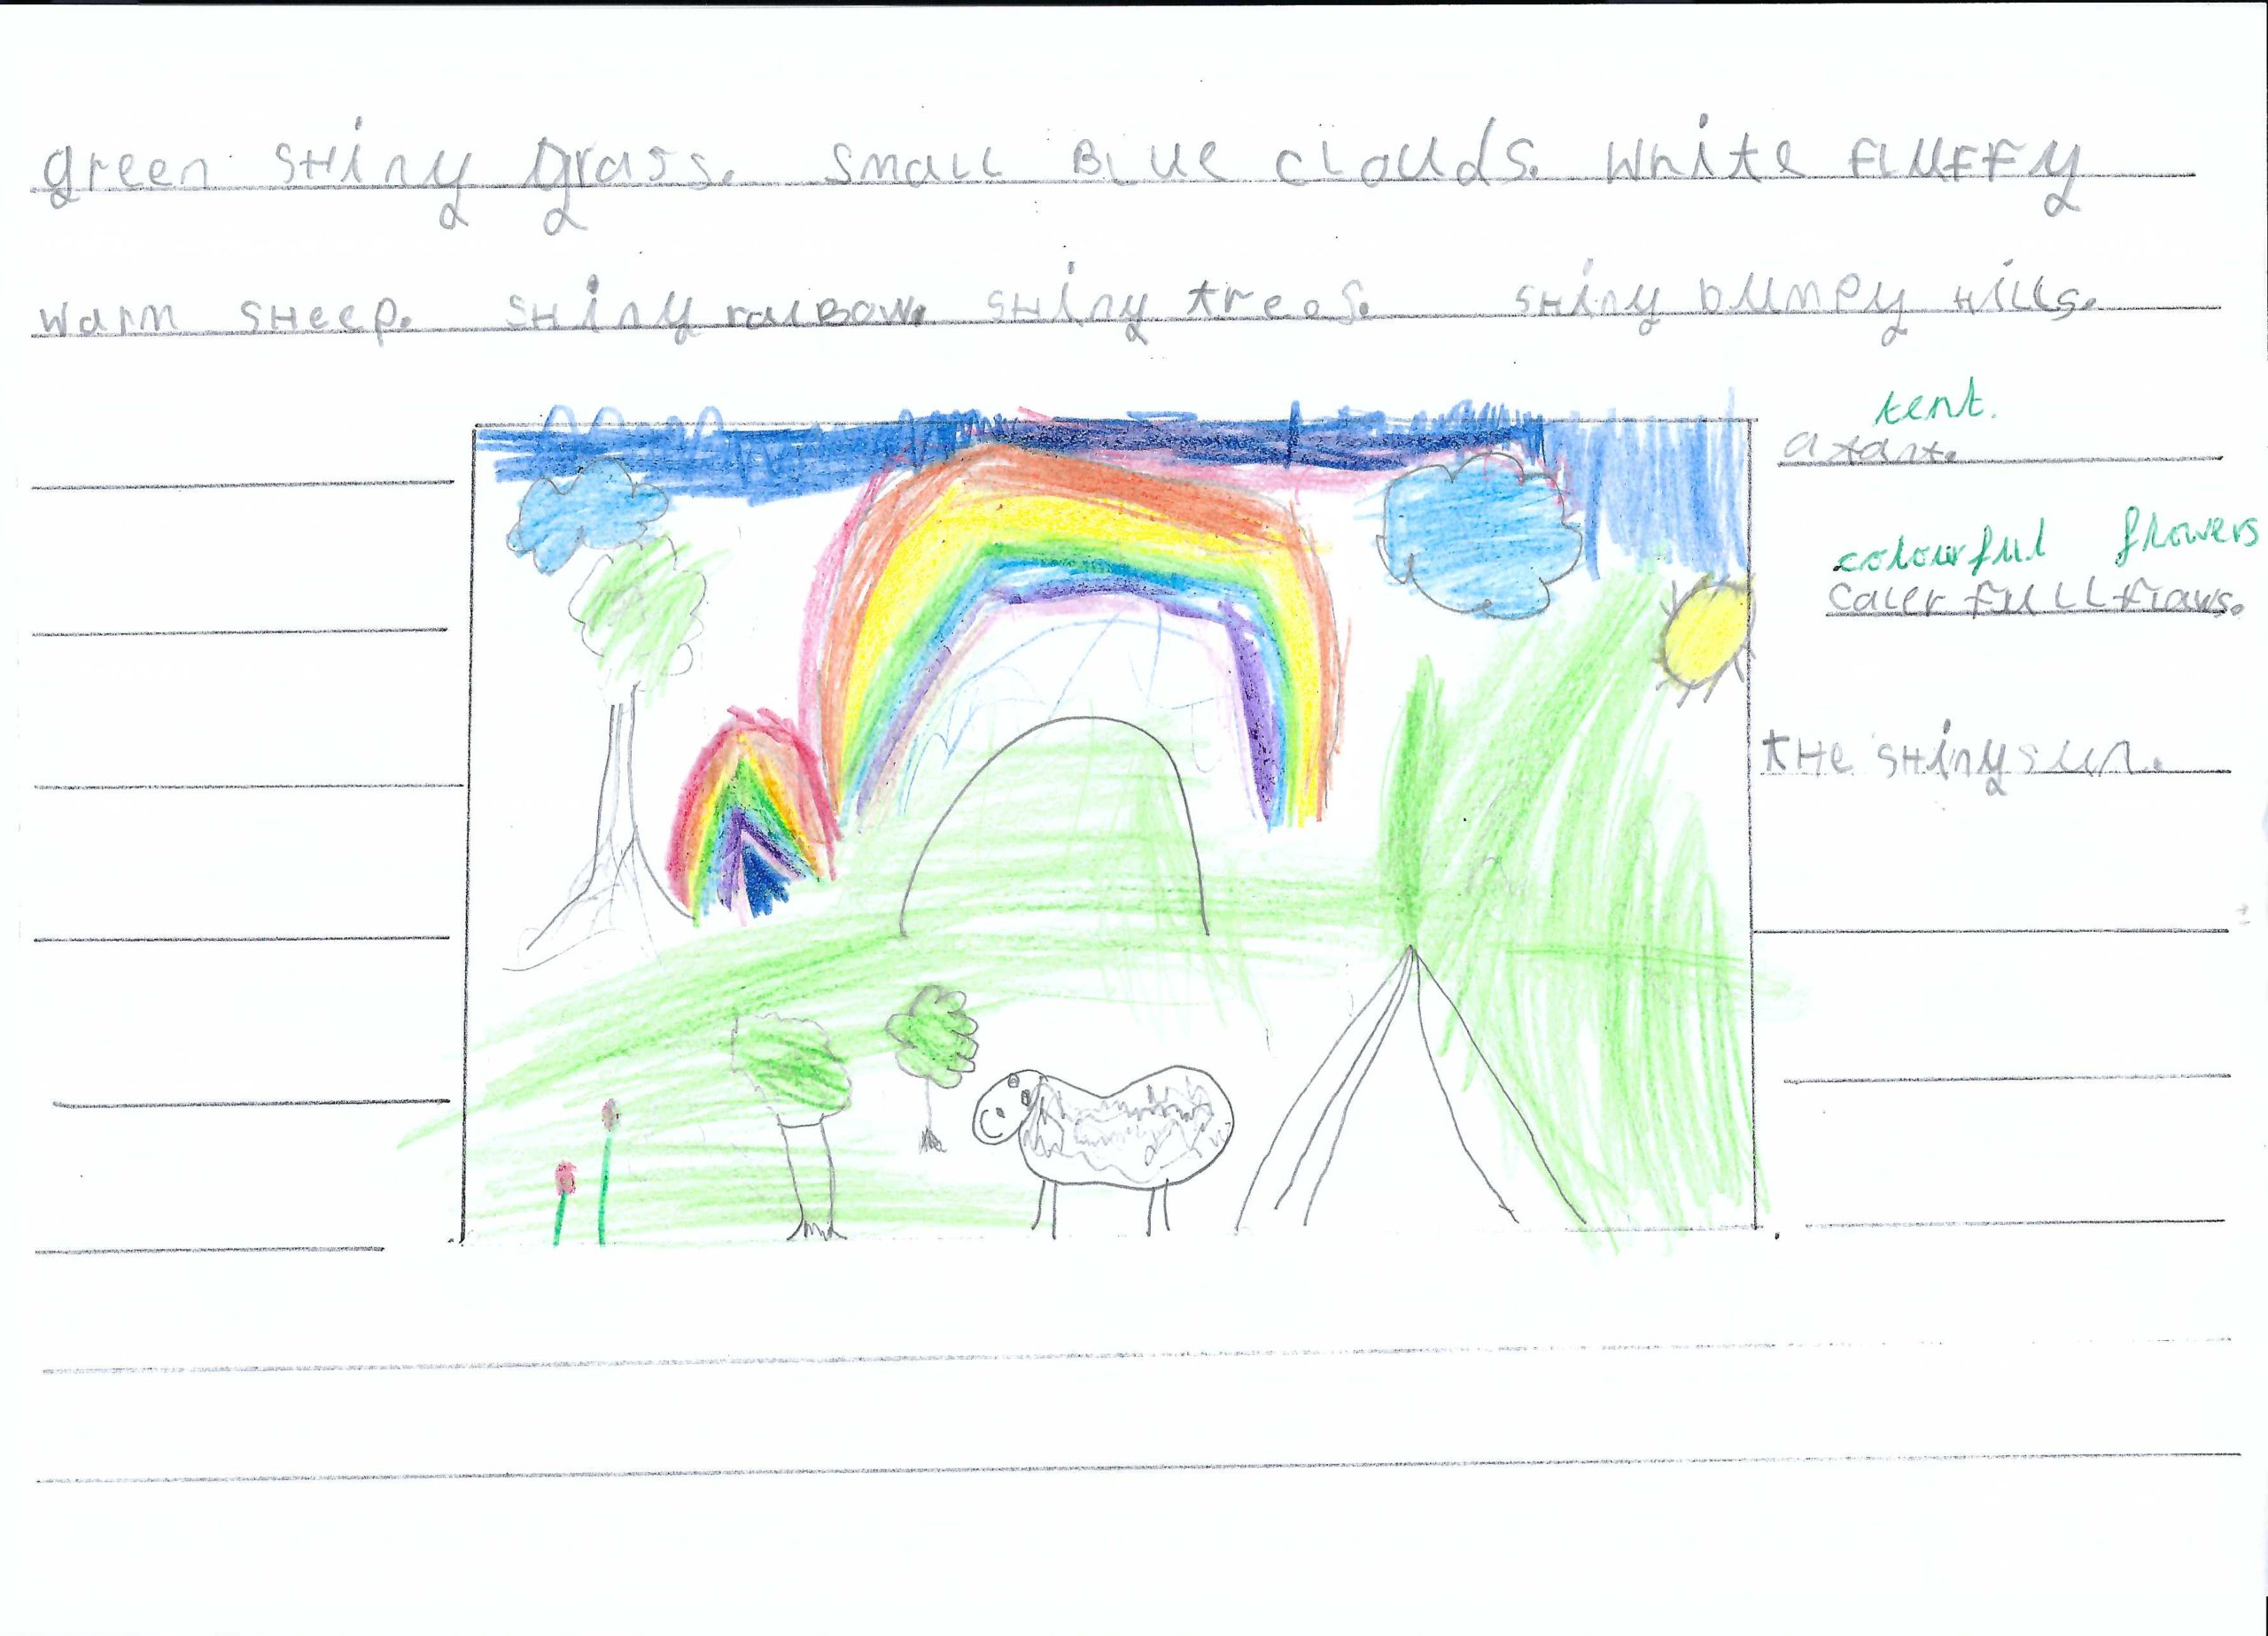 green sHiny grass. small BLue cLouds. white fLuFFy
warm sHeep. sHiny raiBow. sHiny trees. sHiny bumpy HiLLs.
tent.
a tant.
colourful flowers
caLer fuLL fLaws.
tHe sHiny sun.